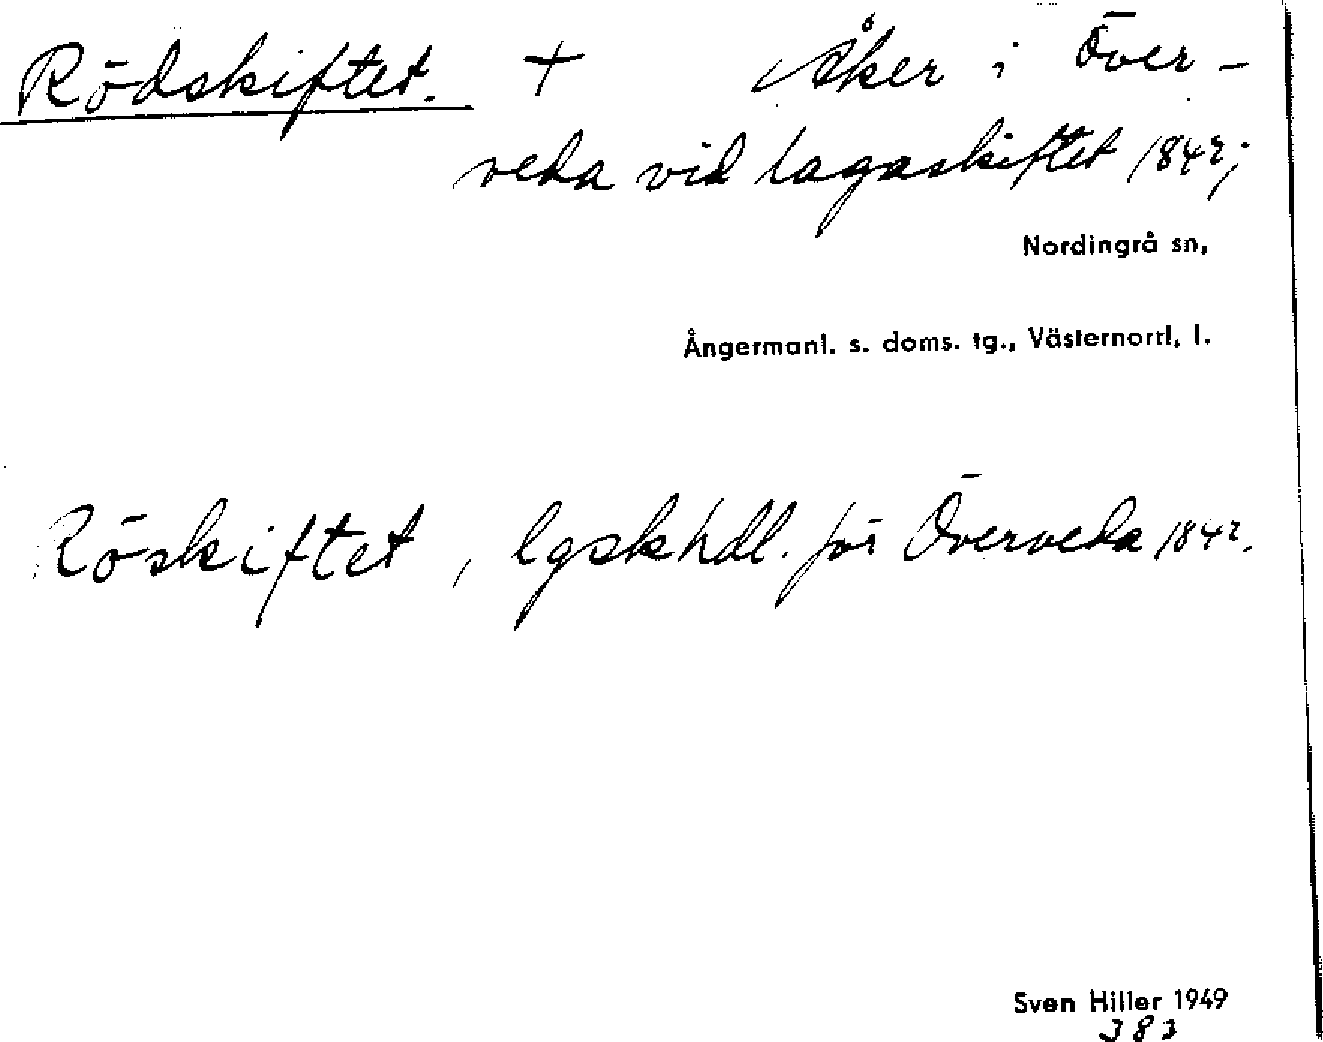 Rödskiftet. + Åker i Över-
veda vid lagaskiftet 1842;
Nordingrå sn,
Ångermanl. s. doms. tg., Västernorrl. l.
Röskiftet, lgskhdl. för Överveda 1842.
Sven Hiller 1949
383